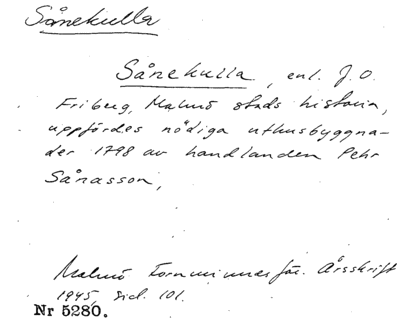 Sånekulla
Sånekulla, enl. J. O.
Friberg, Malmö stads historia,
uppfördes nödiga uthusbyggna-
der 1798 av handlanden Pehr
Sånasson,
Malmö Fornminnesför. Årsskrift
1945, sid. 101.
Nr 5280.